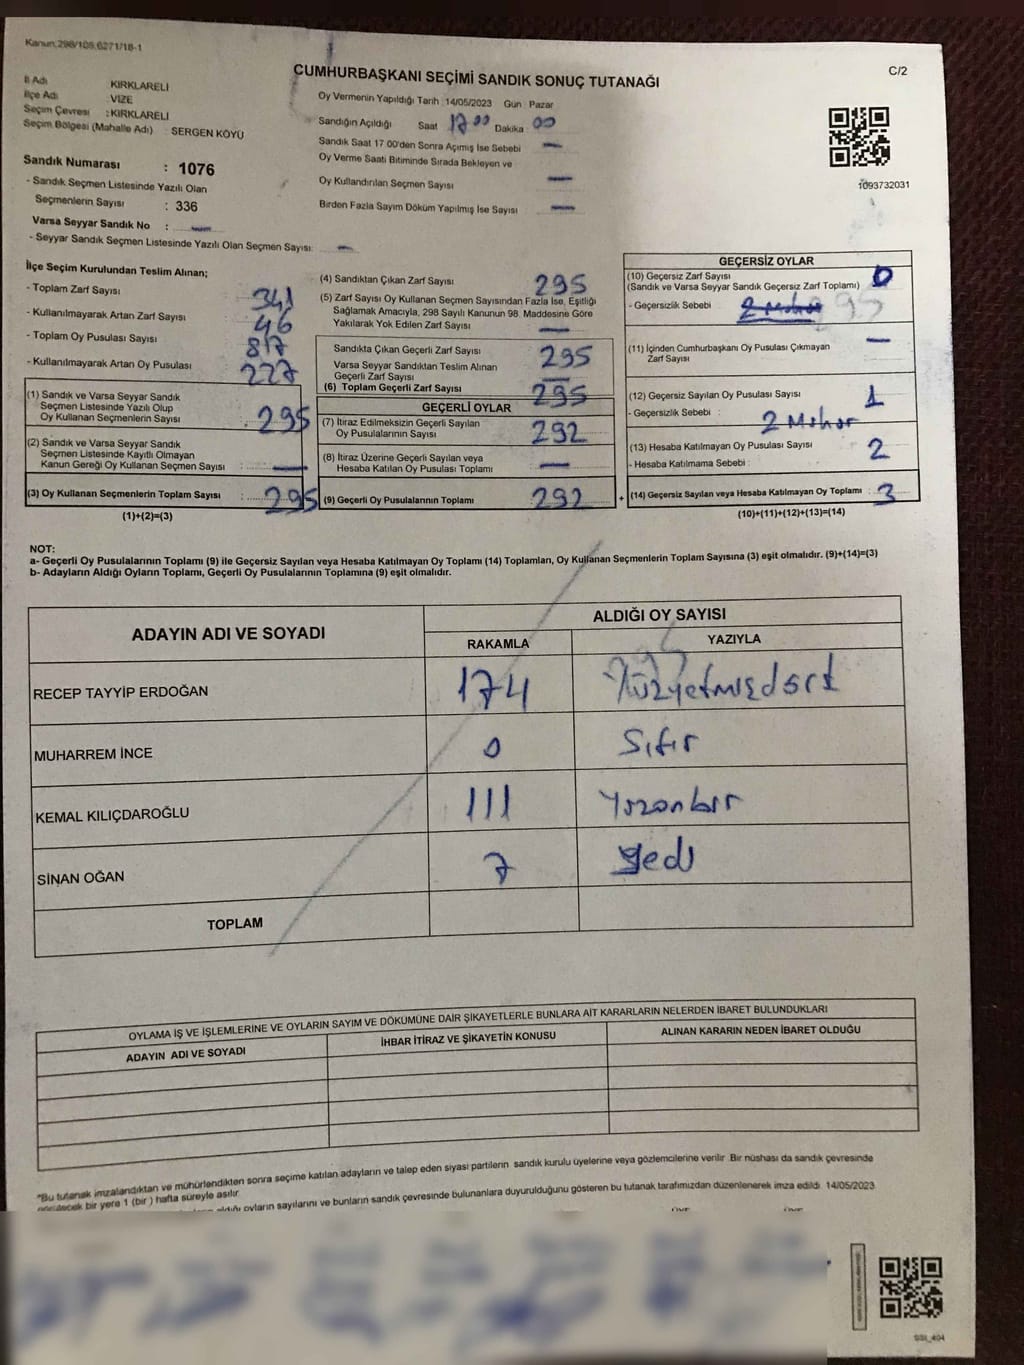 Kanun:298/105,6271/18-1
C/2
CUMHURBAŞKANI SEÇİMİ SANDIK SONUÇ TUTANAĞI
İl Adı KIRKLARELİ
İlçe Adı : VİZE
Seçim Çevresi : KIRKLARELİ
Seçim Bölgesi (Mahalle Adı) SERGEN KÖYÜ
Sandık Numarası : 1076
- Sandık Seçmen Listesinde Yazılı Olan
Seçmenlerin Sayısı : 336
Varsa Seyyar Sandık No : —
- Seyyar Sandık Seçmen Listesinde Yazılı Olan Seçmen Sayısı: —
Oy Vermenin Yapıldığı Tarih : 14/05/2023 Gün : Pazar
Sandığın Açıldığı Saat 17 00 Dakika : 00
Sandık Saat 17 00'den Sonra Açımış İse Sebebi —
Oy Verme Saati Bitiminde Sırada Bekleyen ve
Oy Kullandırılan Seçmen Sayısı —
Birden Fazla Sayım Döküm Yapılmış İse Sayısı —
1093732031
İlçe Seçim Kurulundan Teslim Alınan;
- Toplam Zarf Sayısı 341
- Kullanılmayarak Artan Zarf Sayısı 46
- Toplam Oy Pusulası Sayısı 817
- Kullanılmayarak Artan Oy Pusulası 227
(1) Sandık ve Varsa Seyyar Sandık
Seçmen Listesinde Yazılı Olup
Oy Kullanan Seçmenlerin Sayısı : 295
(2) Sandık ve Varsa Seyyar Sandık
Seçmen Listesinde Kayıtlı Olmayan
Kanun Gereği Oy Kullanan Seçmen Sayısı : —
(3) Oy Kullanan Seçmenlerin Toplam Sayısı : 295
(1)+(2)=(3)
(4) Sandıktan Çıkan Zarf Sayısı 295
(5) Zarf Sayısı Oy Kullanan Seçmen Sayısından Fazla İse, Eşitliği
Sağlamak Amacıyla, 298 Sayılı Kanunun 98. Maddesine Göre
Yakılarak Yok Edilen Zarf Sayısı —
Sandıkta Çıkan Geçerli Zarf Sayısı 295
Varsa Seyyar Sandıktan Teslim Alınan
Geçerli Zarf Sayısı —
(6) Toplam Geçerli Zarf Sayısı 295
GEÇERLİ OYLAR
(7) İtiraz Edilmeksizin Geçerli Sayılan
Oy Pusulalarının Sayısı 292
(8) İtiraz Üzerine Geçerli Sayılan veya
Hesaba Katılan Oy Pusulası Toplamı —
(9) Geçerli Oy Pusulalarının Toplamı 292
+
GEÇERSİZ OYLAR
(10) Geçersiz Zarf Sayısı 0
(Sandık ve Varsa Seyyar Sandık Geçersiz Zarf Toplamı)
- Geçersizlik Sebebi : 2 Mohor
(11) İçinden Cumhurbaşkanı Oy Pusulası Çıkmayan —
Zarf Sayısı
(12) Geçersiz Sayılan Oy Pusulası Sayısı 1
- Geçersizlik Sebebi : 2 Mohor
(13) Hesaba Katılmayan Oy Pusulası Sayısı 2
- Hesaba Katılmama Sebebi :
(14) Geçersiz Sayılan veya Hesaba Katılmayan Oy Toplamı 3
(10)+(11)+(12)+(13)=(14)
NOT:
a- Geçerli Oy Pusulalarının Toplamı (9) ile Geçersiz Sayılan veya Hesaba Katılmayan Oy Toplamı (14) Toplamları, Oy Kullanan Seçmenlerin Toplam Sayısına (3) eşit olmalıdır. (9)+(14)=(3)
b- Adayların Aldığı Oyların Toplamı, Geçerli Oy Pusulalarının Toplamına (9) eşit olmalıdır.
ADAYIN ADI VE SOYADI
ALDIĞI OY SAYISI
RAKAMLA YAZIYLA
RECEP TAYYİP ERDOĞAN 174 Yüzyetmişdört
MUHARREM İNCE 0 Sıfır
KEMAL KILIÇDAROĞLU 111 Yüzonbir
SİNAN OĞAN 7 Yedi
TOPLAM
OYLAMA İŞ VE İŞLEMLERİNE VE OYLARIN SAYIM VE DÖKÜMÜNE DAİR ŞİKAYETLERLE BUNLARA AİT KARARLARIN NELERDEN İBARET BULUNDUKLARI
ADAYIN ADI VE SOYADI İHBAR İTİRAZ VE ŞİKAYETİN KONUSU ALINAN KARARIN NEDEN İBARET OLDUĞU
*Bu tutanak imzalandıktan ve mühürlendikten sonra seçime katılan adayların ve talep eden siyasi partilerin sandık kurulu üyelerine veya gözlemcilerine verilir. Bir nüshası da sandık çevresinde
görülecek bir yere 1 (bir ) hafta süreyle asılır.
aldığı oyların sayılarını ve bunların sandık çevresinde bulunanlara duyurulduğunu gösteren bu tutanak tarafımızdan düzenlenerek imza edildi. 14/05/2023